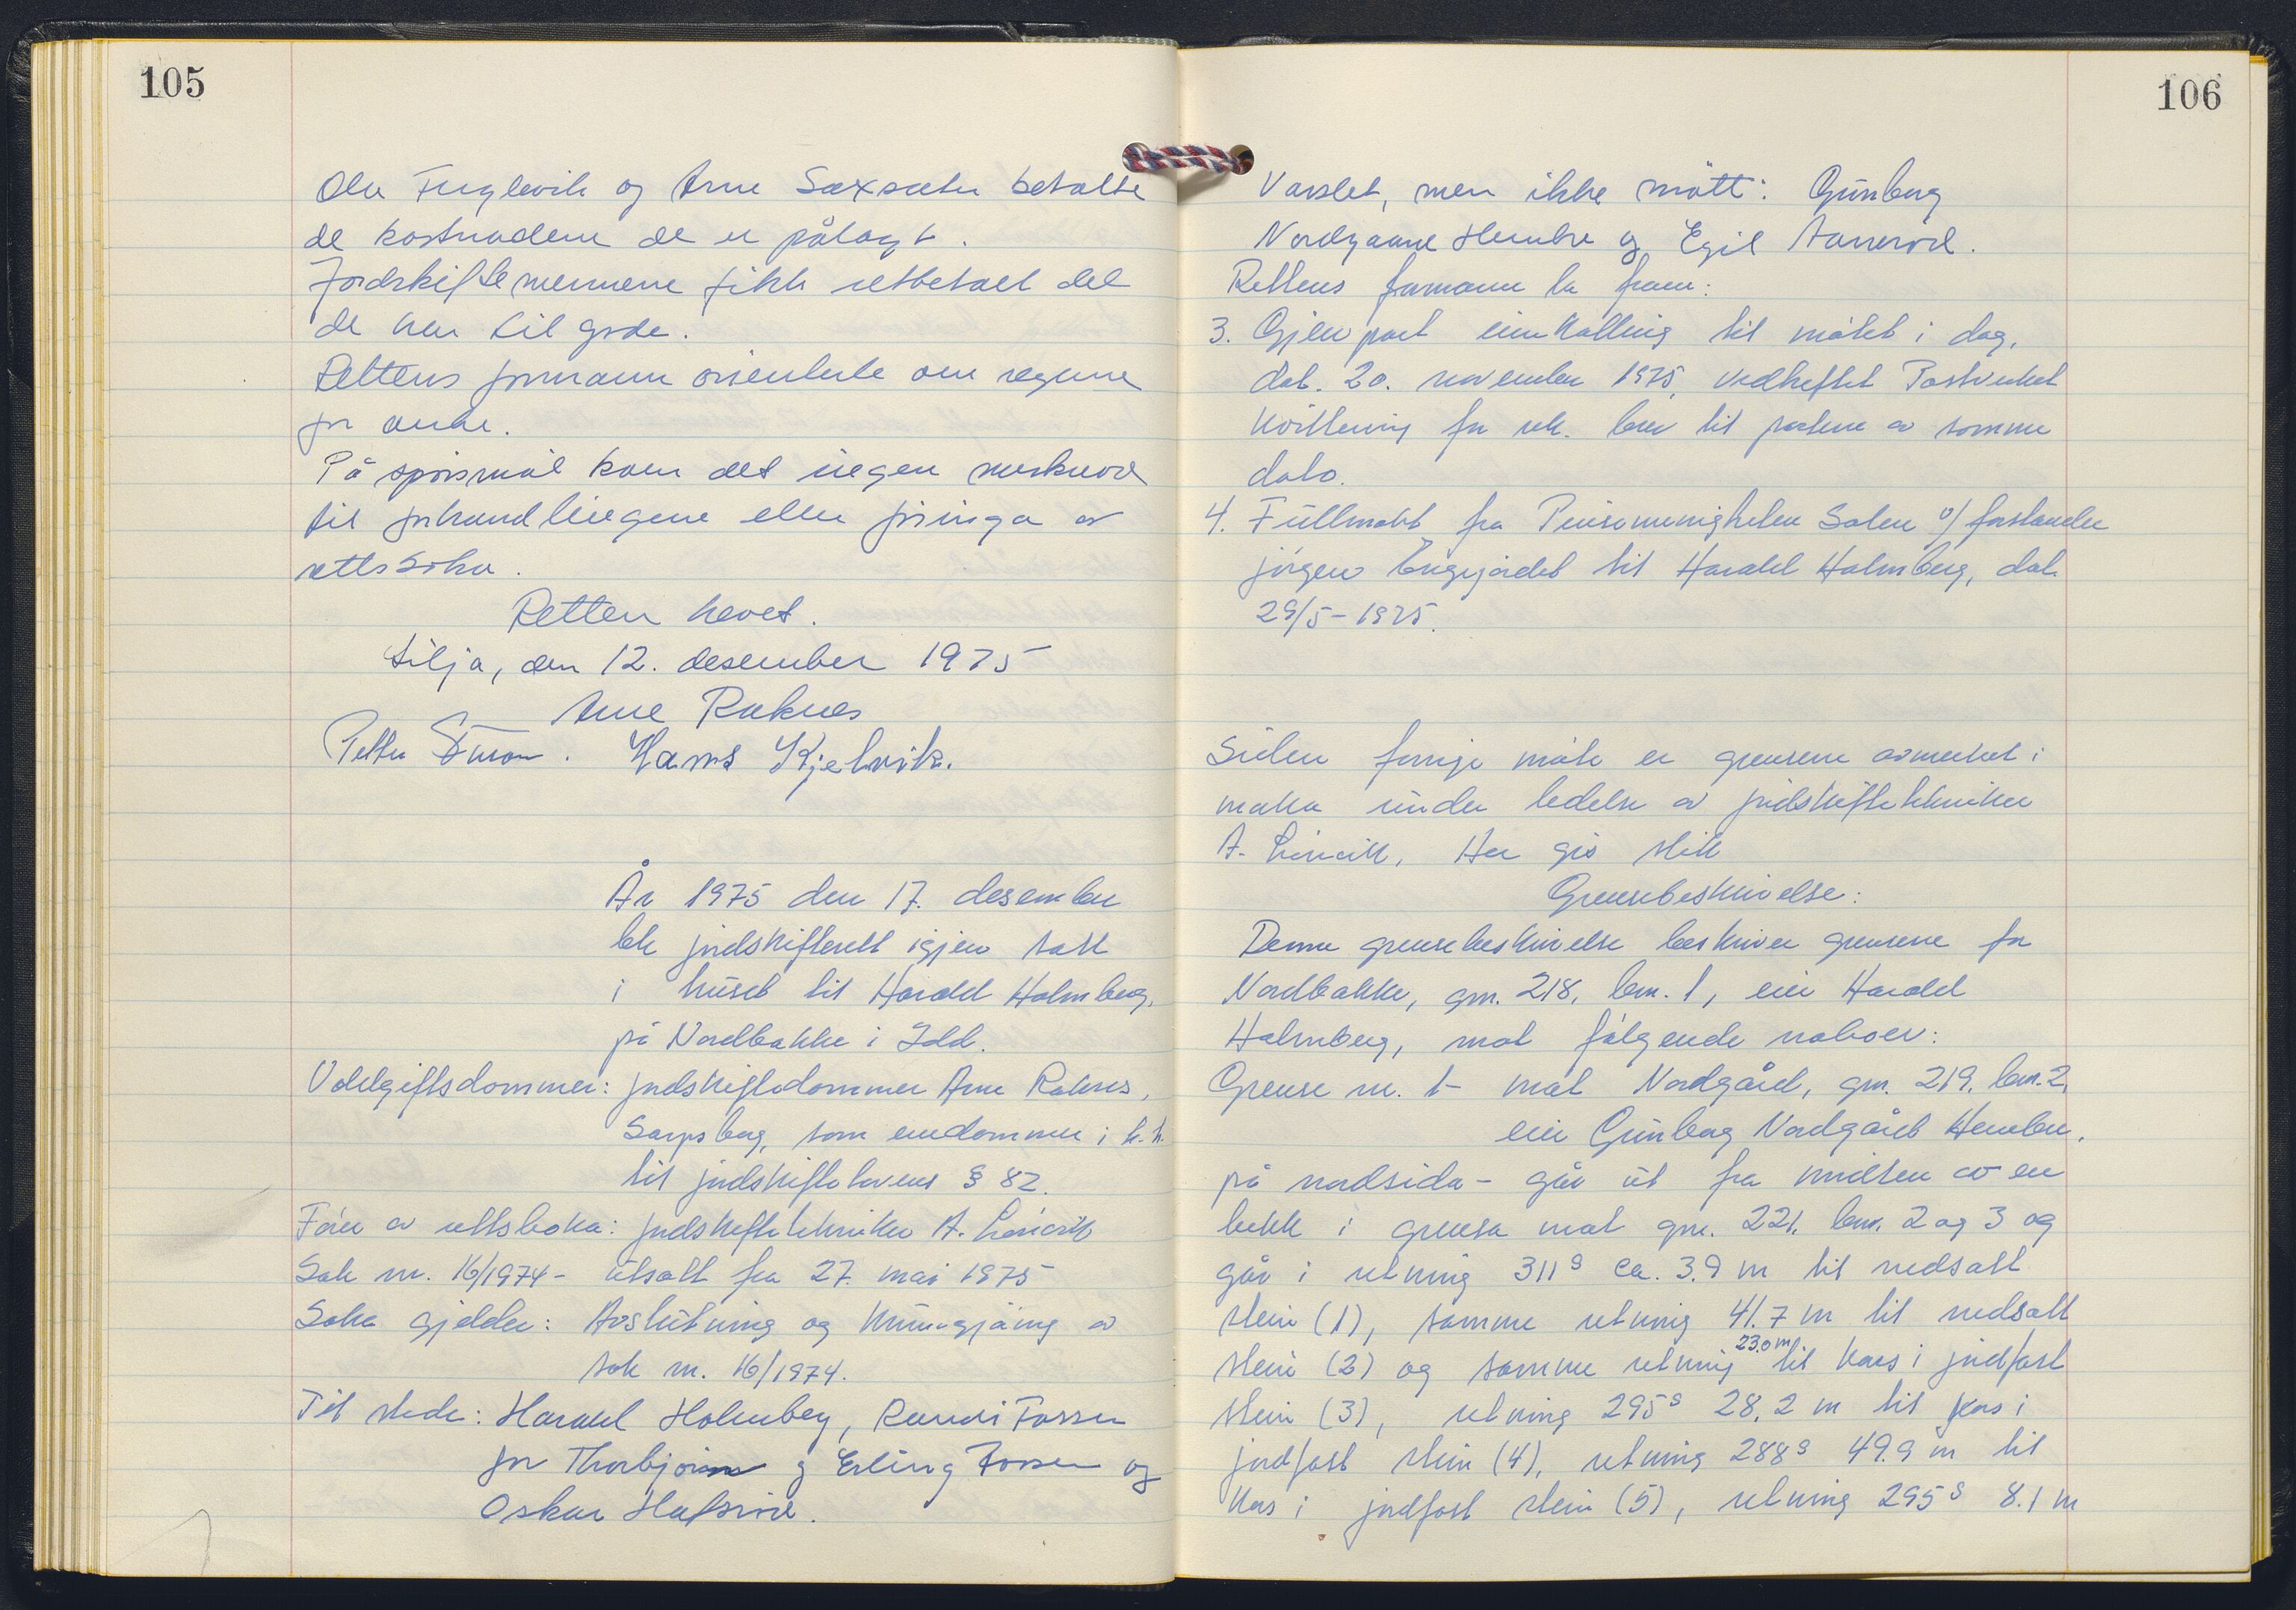 105
Ole Fuglevik og Arne Saxsæter betalte
de kostnadene de er pålagt.
Jordskiftemennene fikk utbetalt det
de har til gode.
Rettens formann orienterte om reglene
for anke.
På spørsmål kom det ingen merknad
til forhandlingene eller føringa av
rettsboka.
Retten hevet.
Lilja, den 12. desember 1975
Arne Raknes
Petter Hans Kjelvik.
År 1975 den 17. desember
ble jordskifterett igjen satt
i huset til Harald Holmberg,
på Nordbakke i Idd.
Voldgiftsdommer: Jordskiftedommer Arne Raknes,
Sarpsborg, som enedommer i h.h.
til jordskiftelovens § 82.
Fører av rettsboka: Jordskiftetekniker A.
Sak nr. 16/1974 - utsatt fra 27. mai 1975
Saka gjelder: Avslutning og kunngjøring av
sak nr. 16/1974.
Til stede: Harald Holmberg, Randi Fosser
for Thorbjørn og Erling Fosser og
Oskar Hafsrød.
106
Varslet, men ikke møtt: Gunborg
Nordgaard Hembre og Egil Aarrerød.
Rettens formann la fram:
3. Gjenpart innkalling til møtet i dag,
dat. 20. november 1975, vedheftet Postverket
kvittering for rek. brev til partene av samme
dato.
4. Fullmakt fra Pinsemenigheten Salen v/ forstander
Jørgen Engejordet til Harald Holmberg, dat.
29/5-1975.
Siden forrige møte er grensene avmerket i
marka under ledelse av jordskiftetekniker
A. Her gis slik
Grensebeskrivelse:
Denne grensebeskrivelse beskriver grensene for
Nordbakke, gnr. 218, bnr. 1, eier Harald
Holmberg, mot følgende naboer:
Grense nr. 1 - mot Nordgård, gnr. 219, bnr. 2,
eier Gunborg Nordgård Hembre,
på nordsida - går ut fra midten av en
bekk i grensa mot gnr. 221, bnr. 2 og 3 og
går i retning 311g ca. 3.9 m til nedsatt
stein (1), samme retning 41.7 m til nedsatt
stein (2) og samme retning 23.0 m til kors i jordfast
stein (3), retning 295g 28.2 m til kors i
jordfast stein (4), retning 288g 49.9 m til
kors i jordfast stein (5), retning 295g 8.1 m